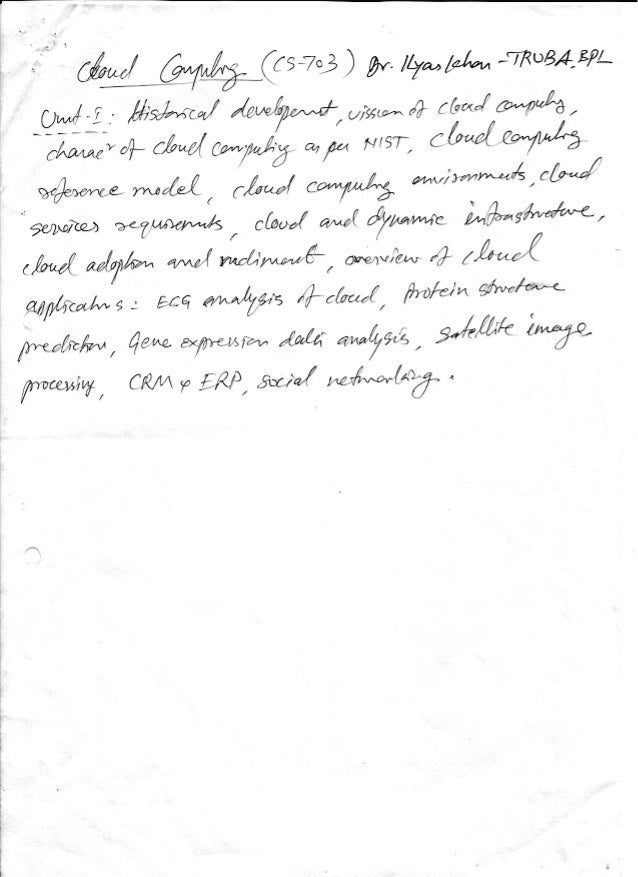 Cloud Computing (CS-703) Dr. Ilyas khan - TRUBA, BPL
Unit-I: Historical development, vission of cloud computing,
character of cloud computing as per NIST, cloud computing
reference model, cloud computing environments, cloud
services requirements, cloud and dynamic infrastructure,
cloud adoption and rudiment, overview of cloud
applications: ECG analysis of cloud, Protein structure
prediction, Gene expression data analysis, Satellite image
processing, CRM & ERP, social networking.